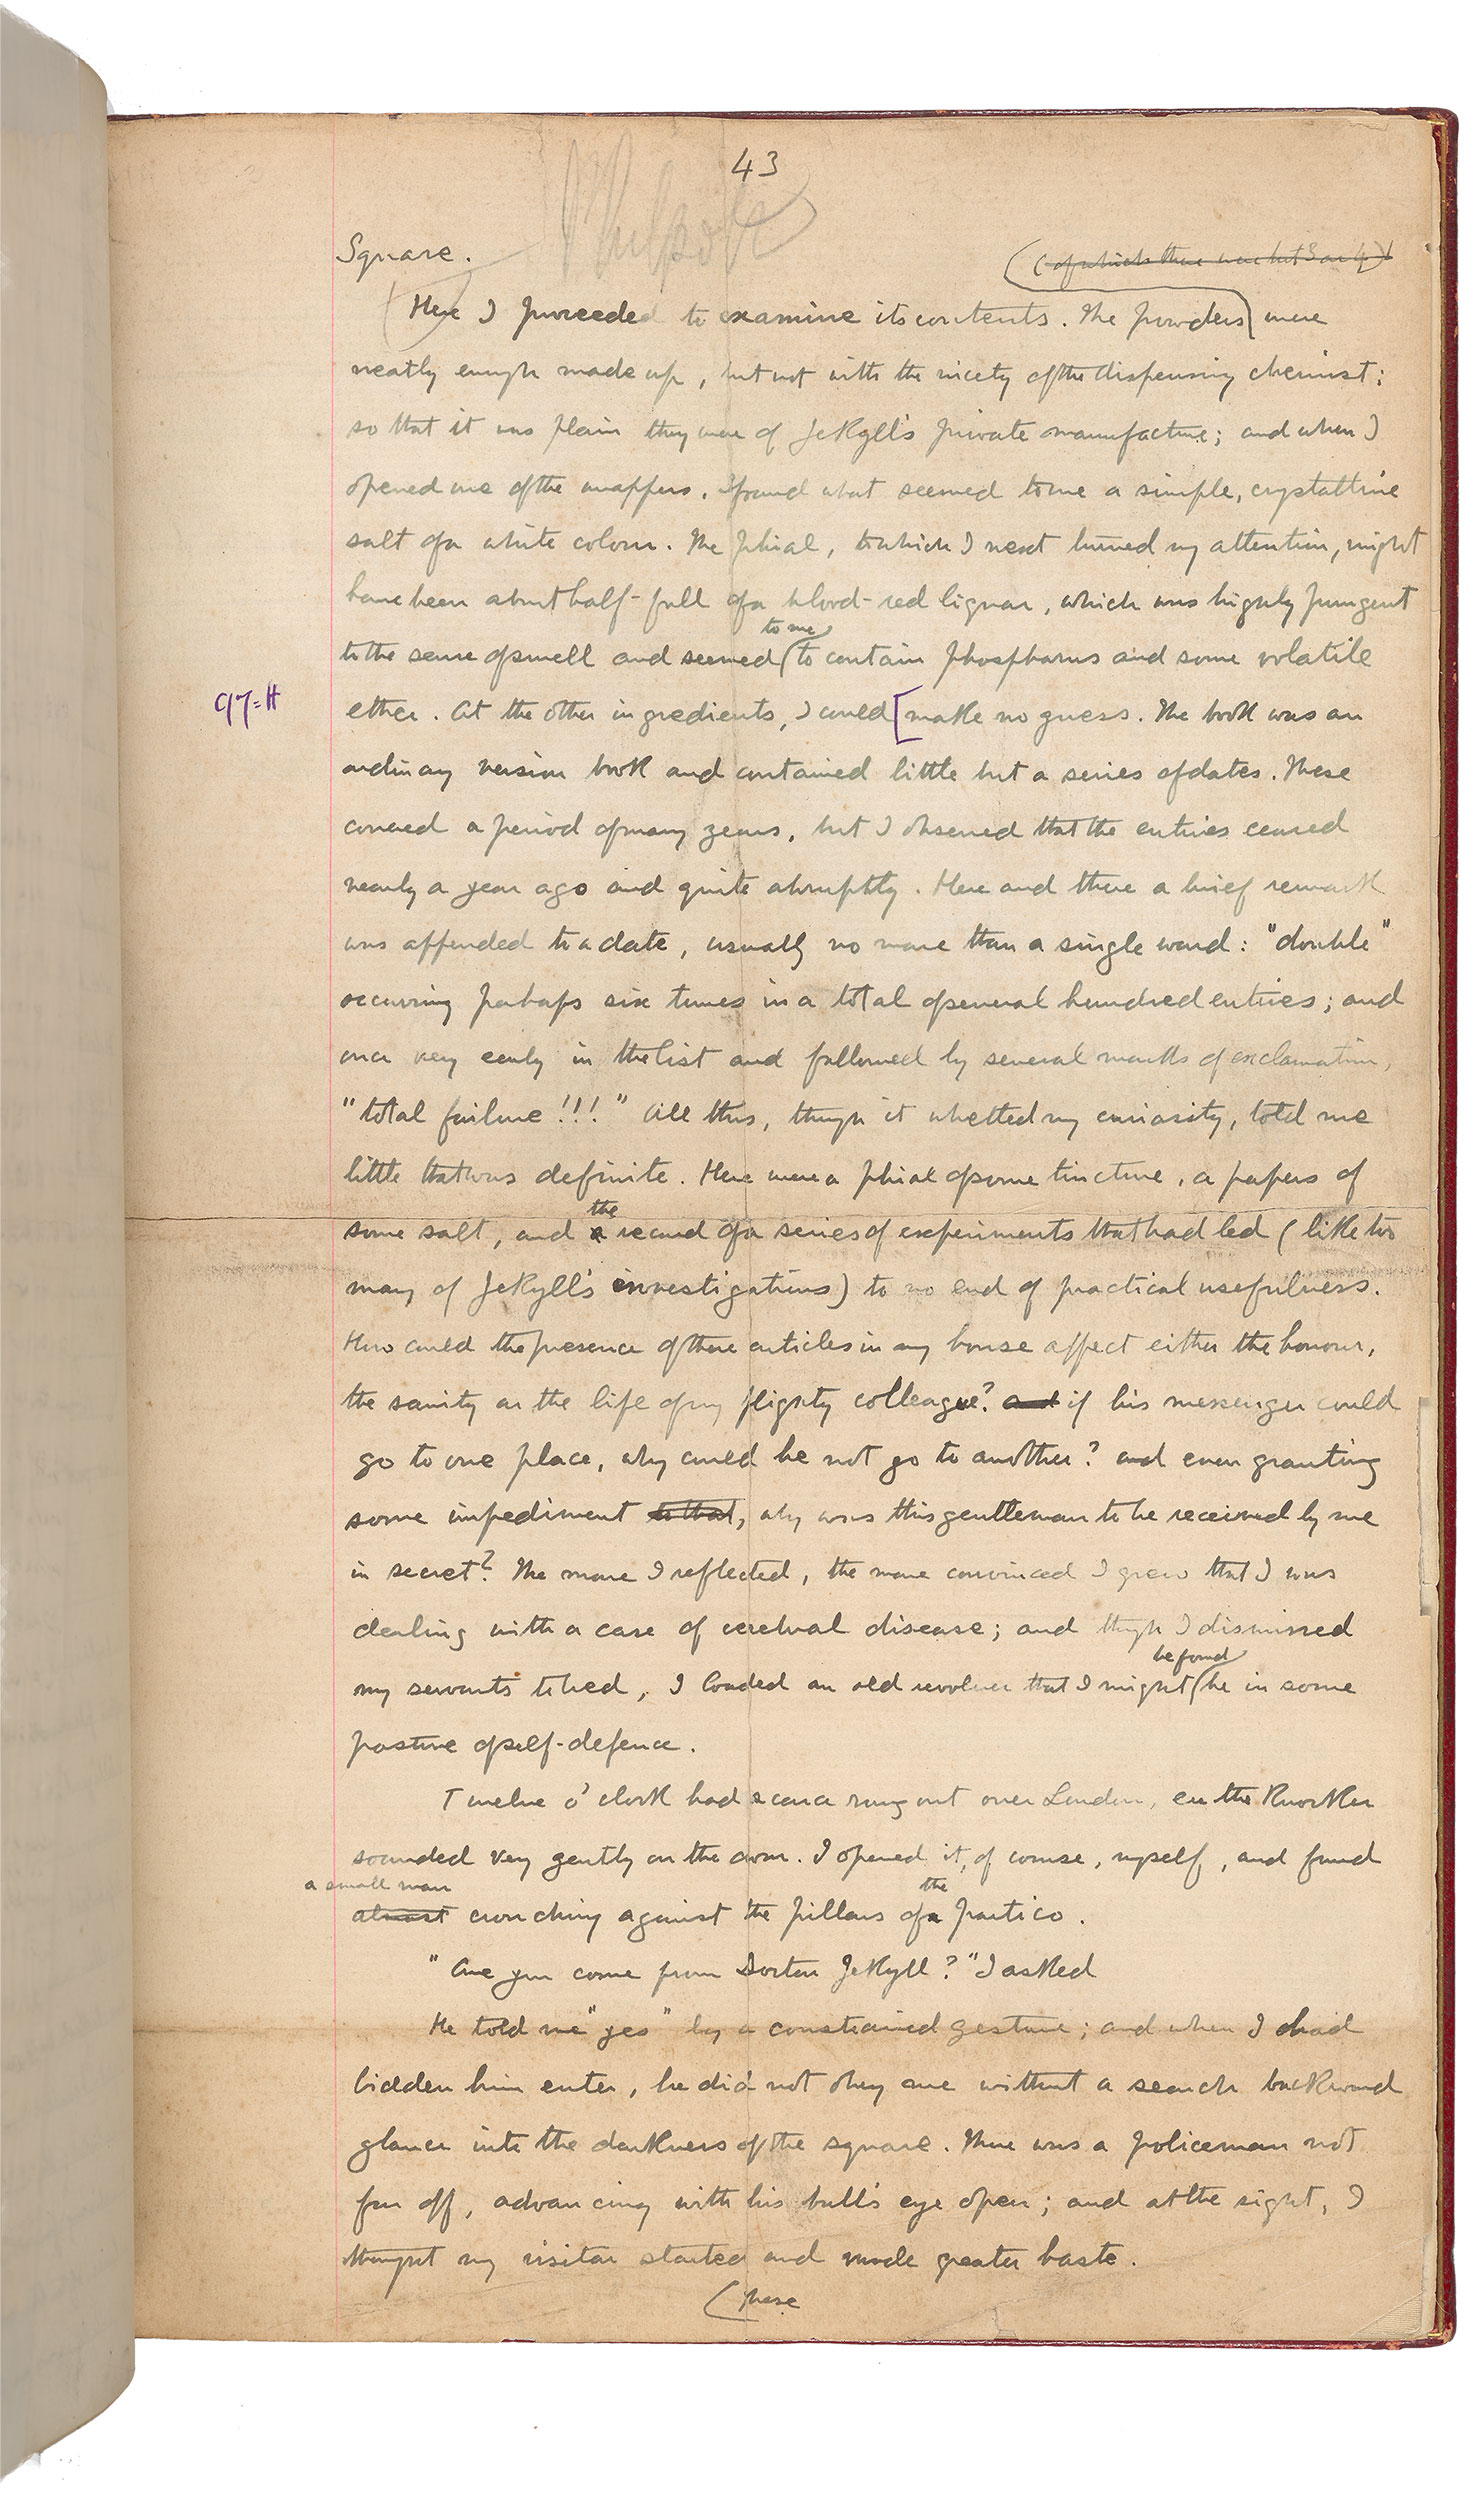 43
Square.
(of which there were but 3 or 4)
Here I proceeded to examine its contents. The powders were
neatly enough made up, but not with the nicety of the dispensing chemist;
so that it was plain they were of Jekyll's private manufacture; and when I
opened one of the wrappers, I found what seemed to me a simple, crystalline
salt of a white colour. The phial, to which I next turned my attention, might
have been about half-full of a blood-red liquor, which was highly pungent
to me
to the sense of smell and seemed to contain phosphorus and some volatile
ether. At the other ingredients, I could [make no guess. The book was an
ordinary version book and contained little but a series of dates. These
covered a period of many years, but I observed that the entries ceased
nearly a year ago and quite abruptly. Here and there a brief remark
was appended to a date, usually no more than a single word: "double"
occurring perhaps six times in a total of several hundred entries; and
once very early in the list and followed by several marks of exclamation,
"total failure!!!" All this, though it whetted my curiosity, told me
little that was definite. Here were a phial of some tincture, a papers of
the
some salt, and a record of a series of experiments that had led (like too
many of Jekyll's investigations) to no end of practical usefulness.
How could the presence of these articles in my house affect either the honour,
the sanity or the life of my flighty colleague? and if his messenger could
go to one place, why could he not go to another? and even granting
some impediment to that, why was this gentleman to be received by me
in secret? The more I reflected, the more convinced I grew that I was
dealing with a case of cerebral disease; and though I dismissed
be found
my servants to bed, I loaded an old revolver that I might be in some
posture of self-defence.
Twelve o'clock had scarce rung out over London, ere the knocker
sounded very gently on the door. I opened it, of course, myself, and found
a small man
the
almost crouching against the pillars of a portico.
"Are you come from Doctor Jekyll?" I asked
He told me "yes" by a constrained gesture; and when I had
bidden him enter, he did not obey me without a search backward
glance into the darkness of the square. There was a policeman not
far off, advancing with his bull's eye open; and at the sight, I
thought my visitor started and made greater haste.
(These